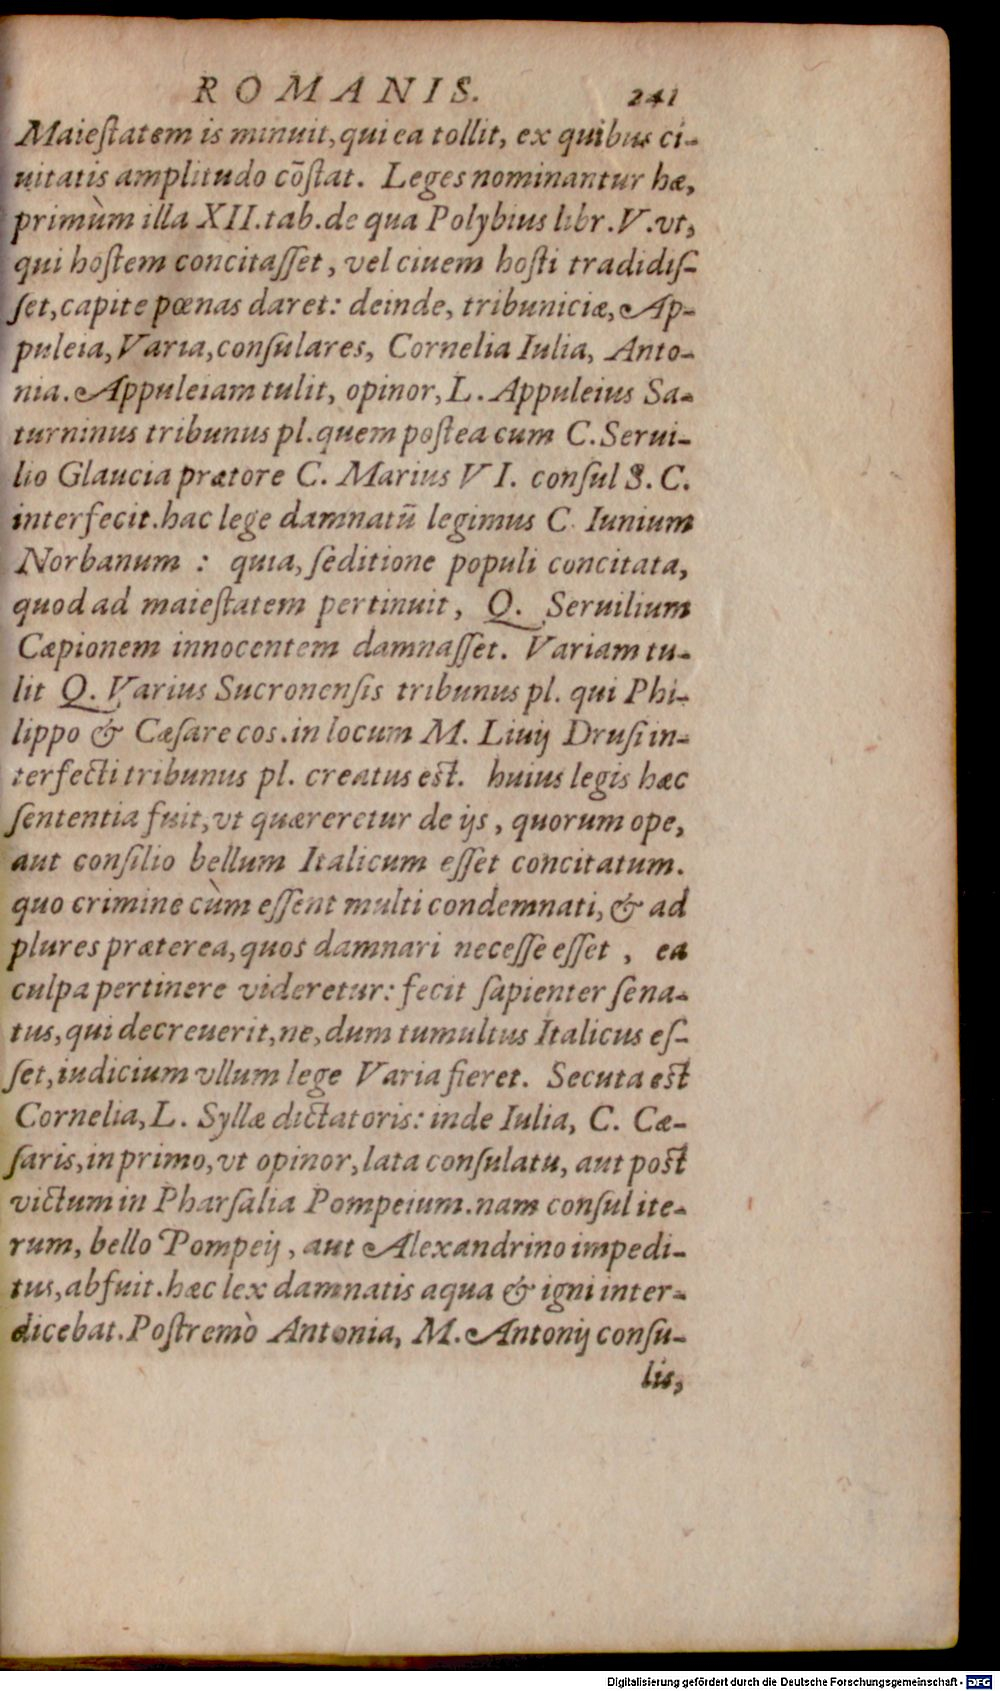 ROMANIS. 241
Maiestatem is minuit, qui ea tollit, ex quibus ci-
uitatis amplitudo cōstat. Leges nominantur hæ,
primùm illa XII. tab. de qua Polybius libr. V. vt,
qui hostem concitasset, vel ciuem hosti tradidis-
set, capite pœnas daret: deinde, tribuniciæ, Ap-
puleia, Varia, consulares, Cornelia Iulia, Anto-
nia. Appuleiam tulit, opinor, L. Appuleius Sa-
turninus tribunus pl. quem postea cum C. Serui-
lio Glaucia prætore C. Marius VI. consul S. C.
interfecit. hac lege damnatū legimus C. Iunium
Norbanum : quia, seditione populi concitata,
quod ad maiestatem pertinuit, Q. Seruilium
Cæpionem innocentem damnasset. Variam tu-
lit Q. Varius Sucronensis tribunus pl. qui Phi-
lippo & Cæsare cos. in locum M. Liuij Drusi in-
terfecti tribunus pl. creatus est. huius legis hæc
sententia fuit, vt quæreretur de ijs, quorum ope,
aut consilio bellum Italicum esset concitatum.
quo crimine cùm essent multi condemnati, & ad
plures præterea, quos damnari necesse esset , ea
culpa pertinere videretur: fecit sapienter sena-
tus, qui decreuerit, ne, dum tumultus Italicus es-
set, iudicium vllum lege Varia fieret. Secuta est
Cornelia, L. Syllæ dictatoris: inde Iulia, C. Cæ-
saris, in primo, vt opinor, lata consulatu, aut post
victum in Pharsalia Pompeium. nam consul ite-
rum, bello Pompeij, aut Alexandrino impedi-
tus, abfuit. hæc lex damnatis aqua & igni inter-
dicebat. Postremò Antonia, M. Antonij consu-
lis,
Digitalisierung gefördert durch die Deutsche Forschungsgemeinschaft - DFG